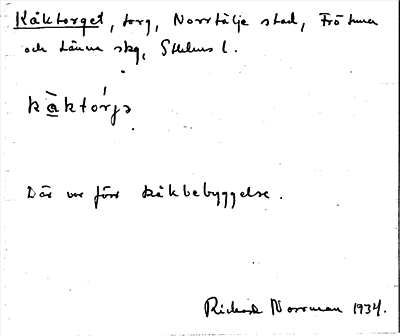 Kåktorget, torg, Norrtälje stad, Frötuna
och Länna skg, Sthlms l.
kåktórjə
Där var förr kåkbebyggelse.
Rickard Norrman 1934.